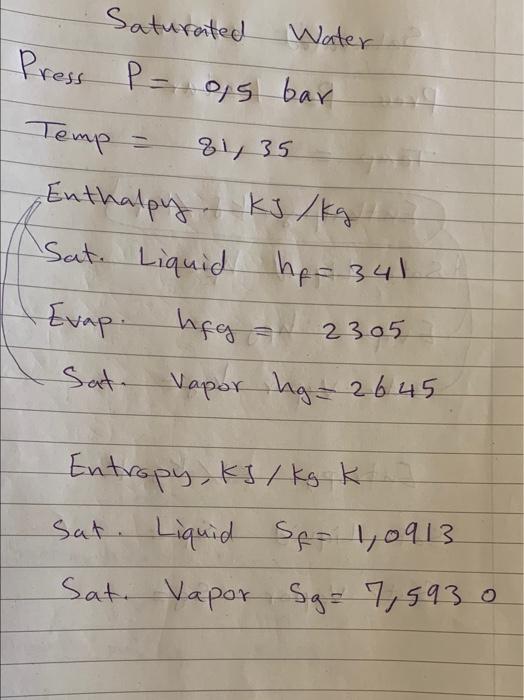 Saturated Water
Press P = 0,5 bar
Temp = 81,35
Enthalpy. KJ/kg
Sat. Liquid hf = 341
Evap. hfg = 2305
Sat. Vapor hg = 2645
Entropy, KJ/kg K
Sat. Liquid Sf = 1,0913
Sat. Vapor Sg = 7,5930